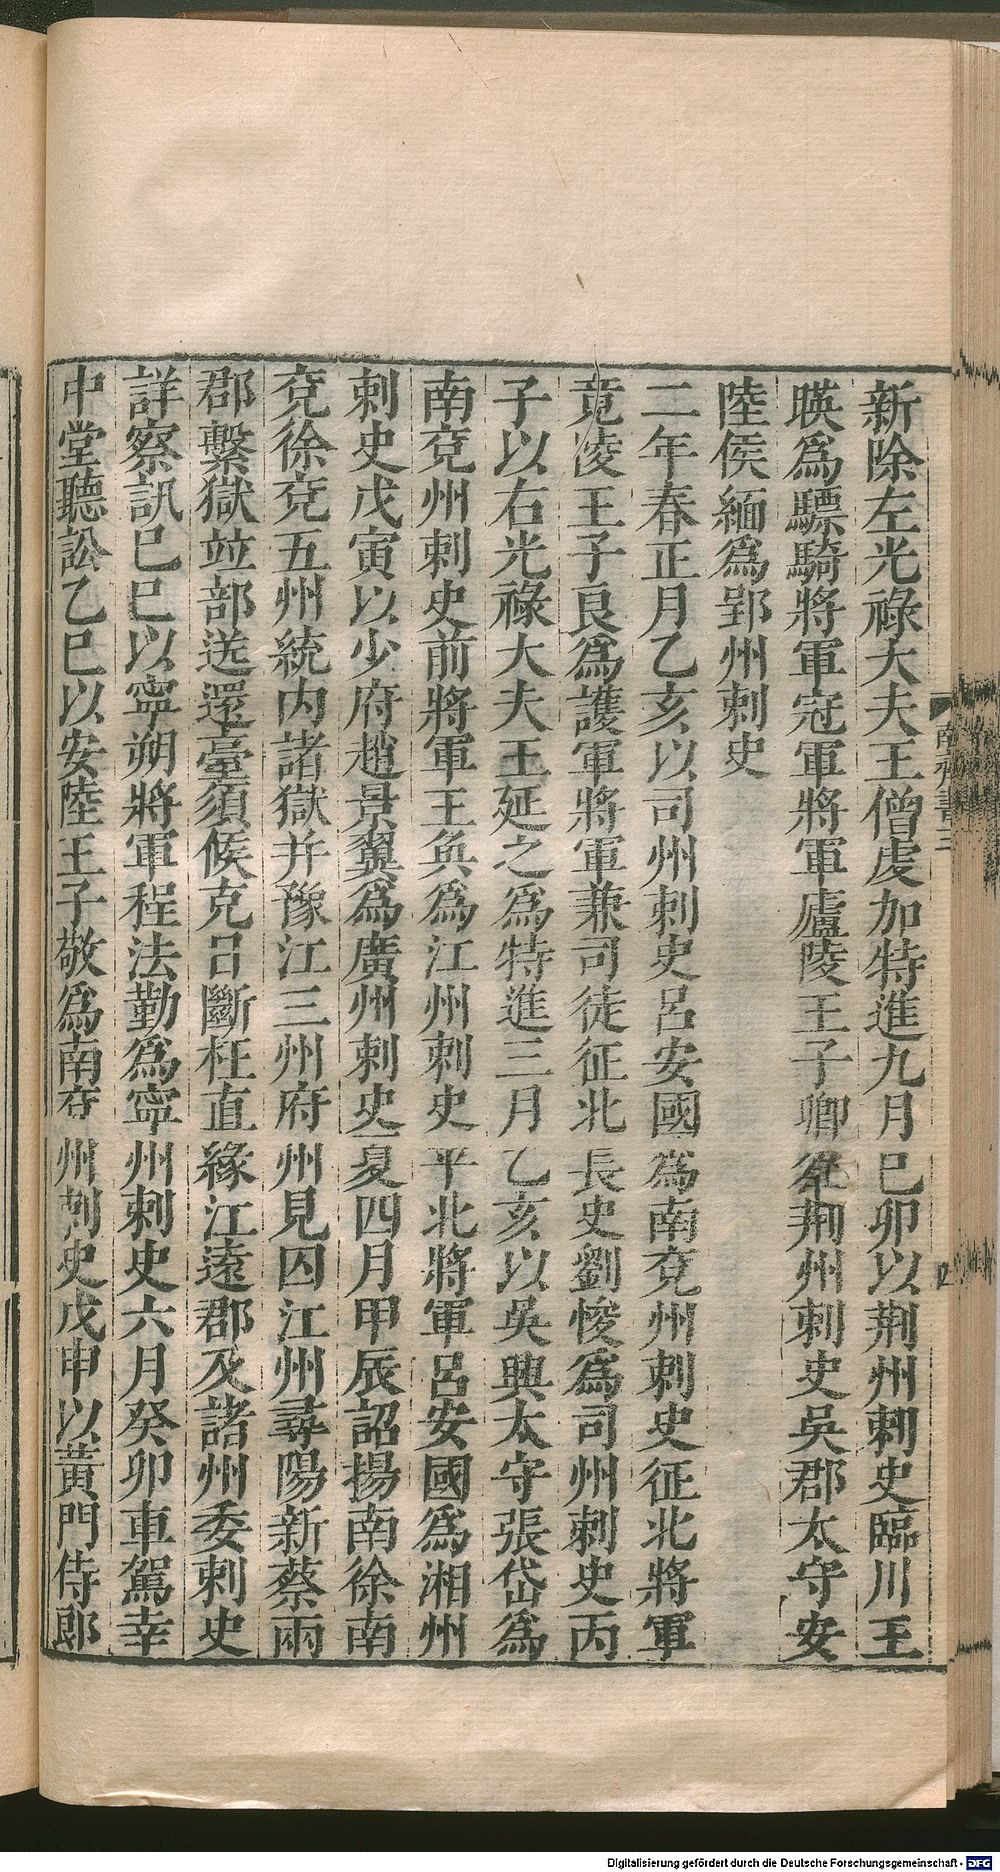 新除左光祿大夫王僧虔加特進九月己卯以荆州刺史臨川王
暎爲驃騎將軍冠軍將軍廬陵王子卿爲荆州刺史吳郡太守安
陸侯緬爲郢州刺史
二年春正月乙亥以司州刺史呂安國爲南兗州刺史征北將軍
竟陵王子良爲護軍將軍兼司徒征北長史劉悛爲司州刺史丙
子以右光祿大夫王延之爲特進三月乙亥以吳興太守張岱爲
南兗州刺史前將軍王奐爲江州刺史平北將軍呂安國爲湘州
刺史戊寅以少府趙景翼爲廣州刺史夏四月甲辰詔揚南徐南
兗徐兗五州統內諸獄并豫江三州府州見囚江州尋陽新蔡兩
郡繫獄竝部送還臺須候克日斷枉直緣江遠郡及諸州委刺史
詳察訊己巳以寧朔將軍程法勤爲寧州刺史六月癸卯車駕幸
中堂聽訟乙巳以安陸王子敬爲南兗州刺史戊申以黃門侍郞
南齊書三
四
Digitalisierung gefördert durch die Deutsche Forschungsgemeinschaft - DFG